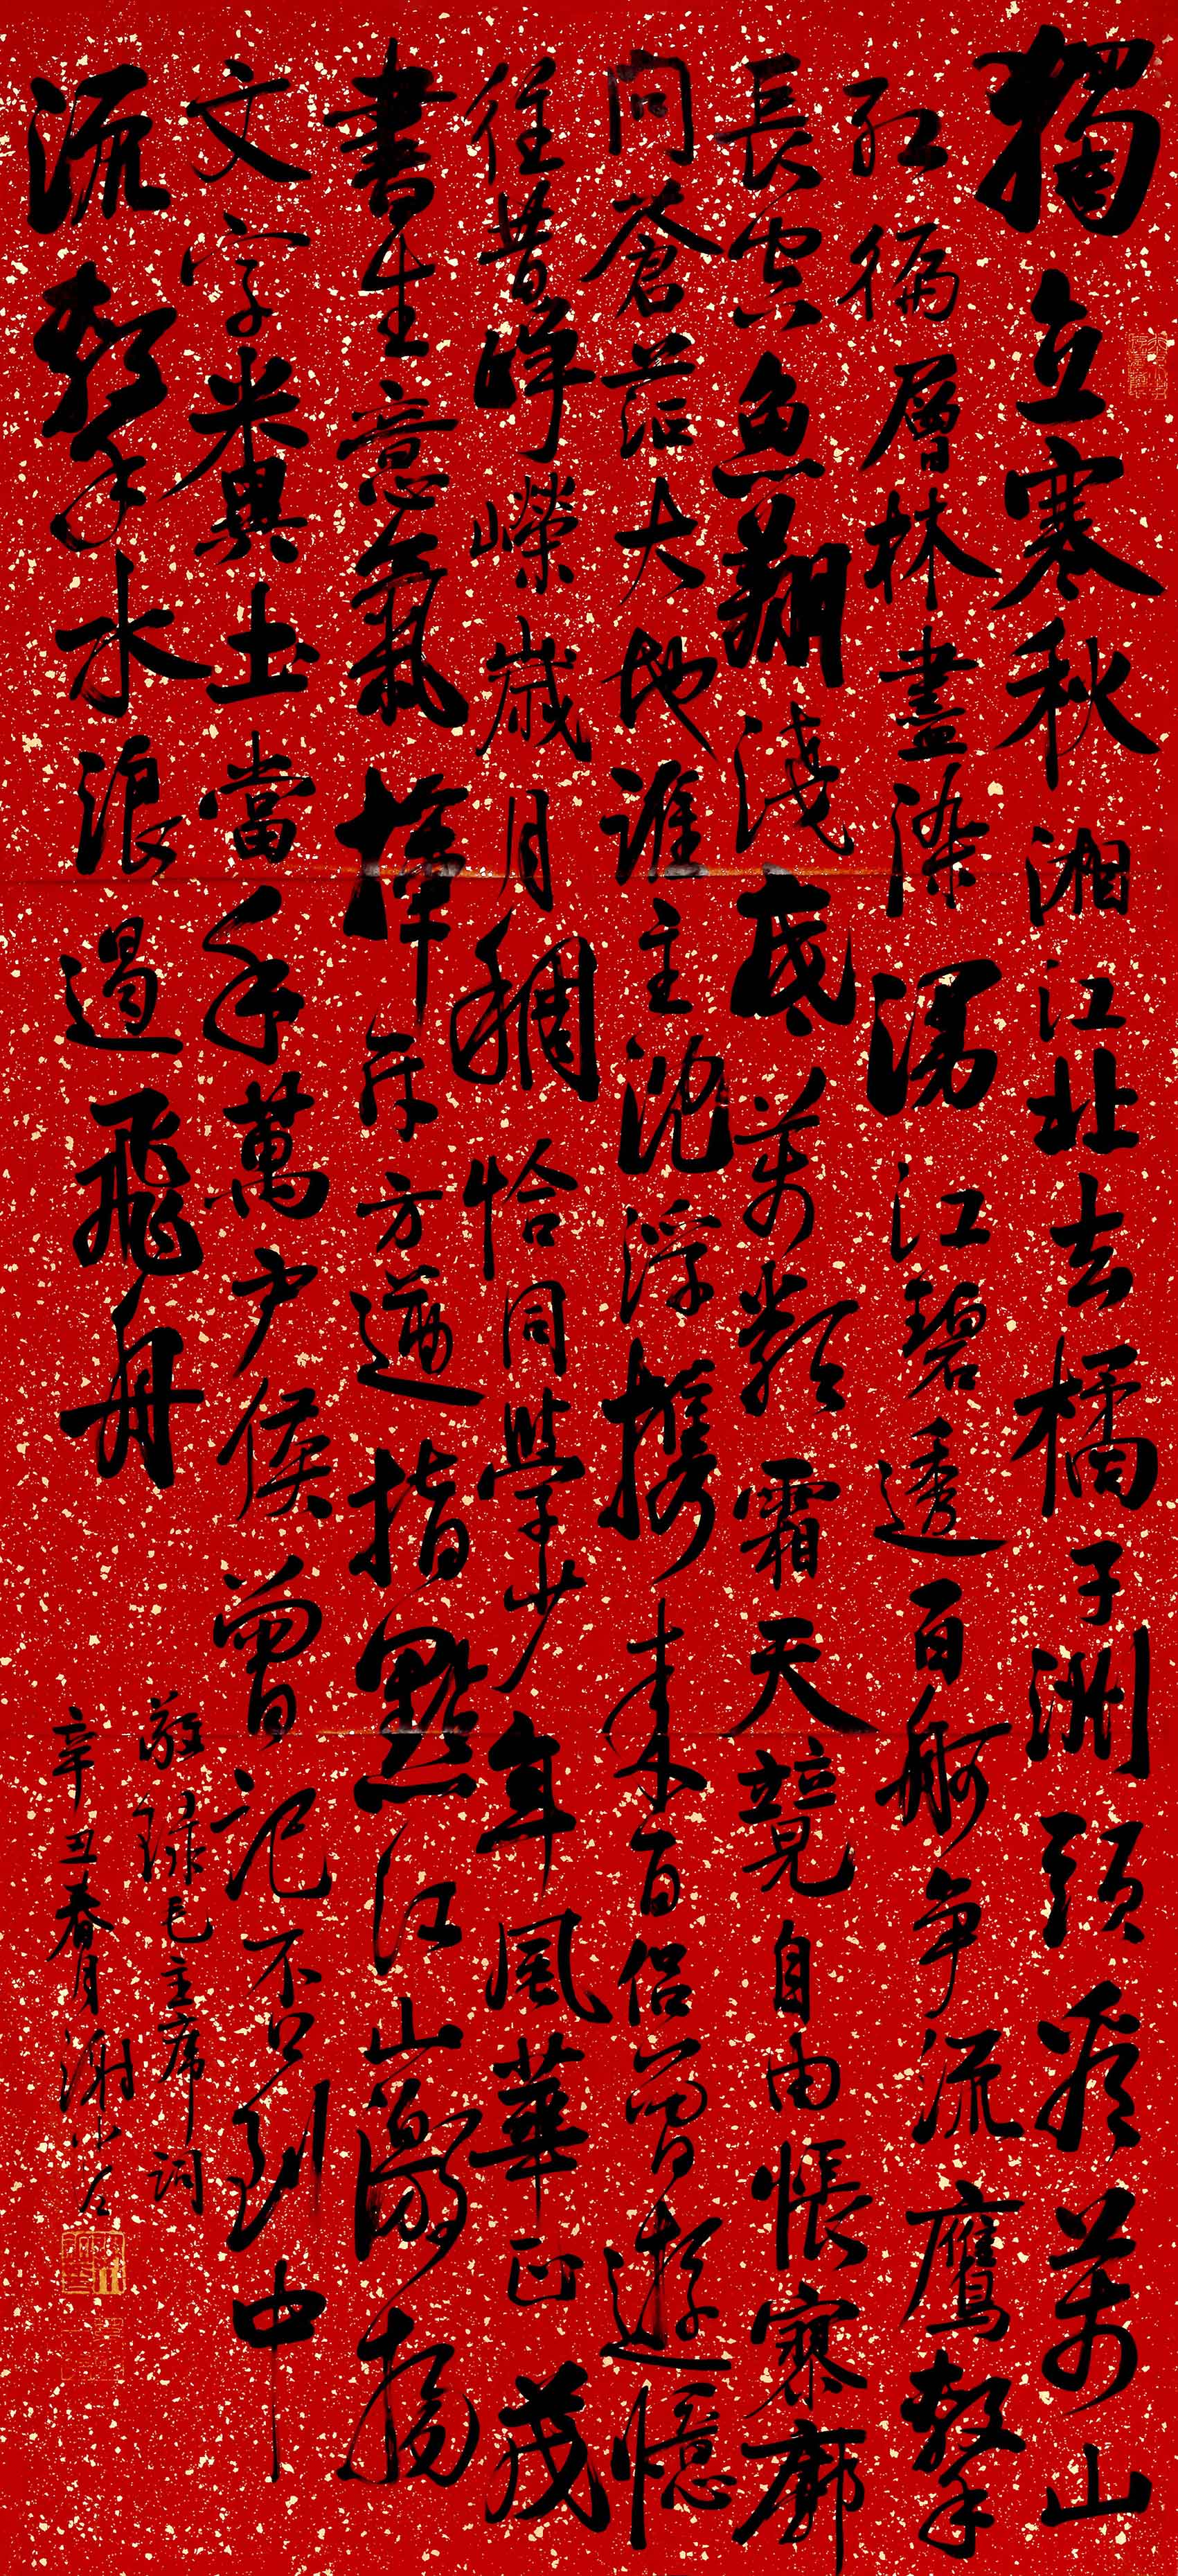 獨立寒秋湘江北去橘子洲頭看萬山
紅徧層林盡染漫江碧透百舸争流鷹擊
長空魚翔淺底萬類霜天競自由悵寥廓
問蒼茫大地誰主沈浮攜来百侣曾遊憶
往昔崢嶸歲月稠恰同學少年風華正茂
書生意氣揮斥方遒指點江山激揚
文字糞土當年萬户侯曾記否到中
流擊水浪遏飛舟
敬録毛主席詞
辛丑春月謝